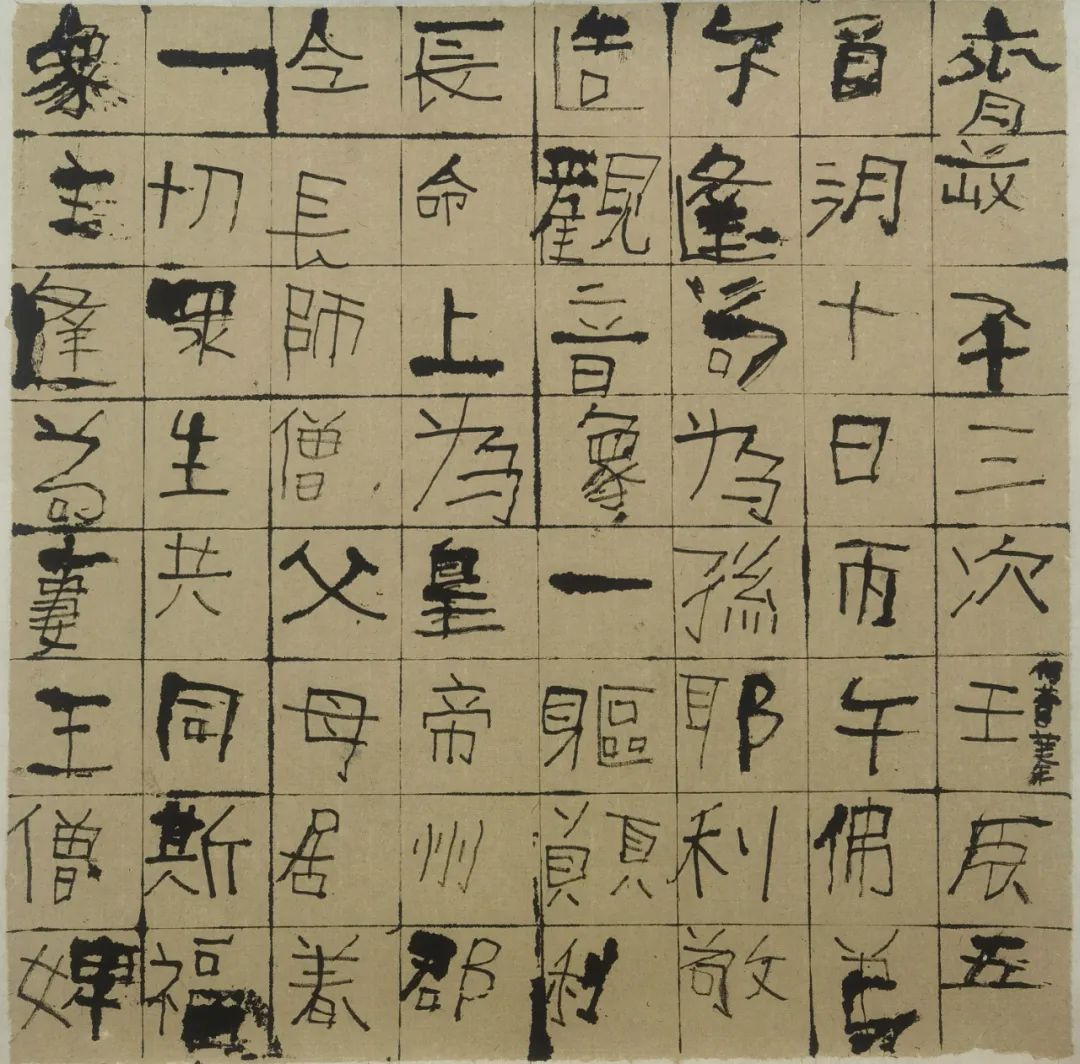 齊武平三次壬辰五
十日丙午佛弟
子逢苟為孫耶利敬
造觀音象一軀願利
長命上為皇帝州郡
令長師僧父母居着
一切眾生共同斯福
象主逢苟妻王僧婢